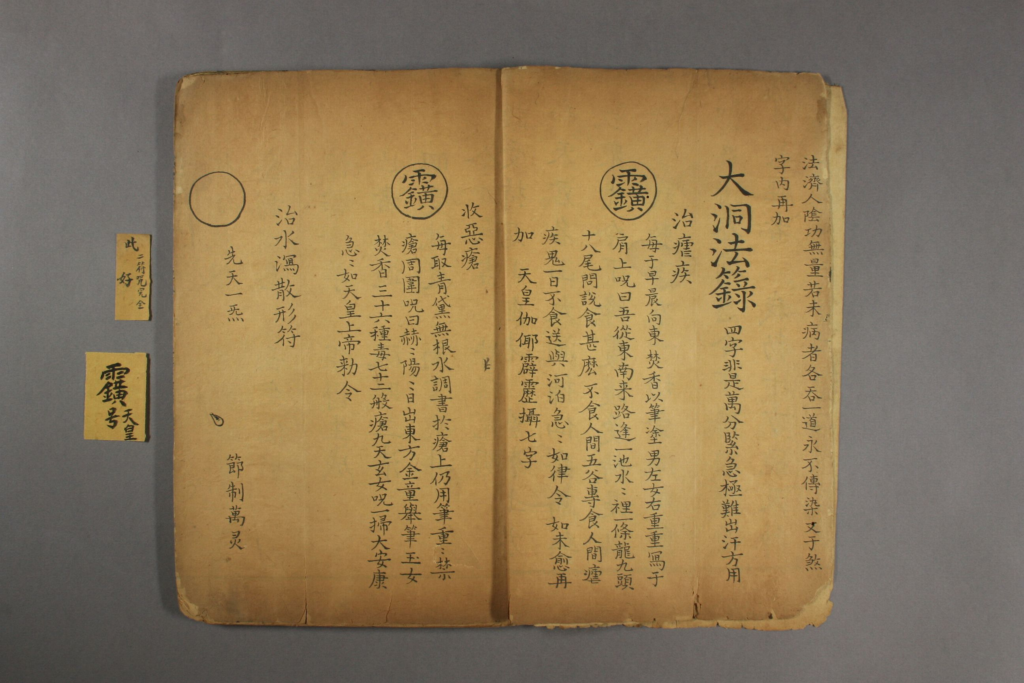 法濟人陰功無量若未病者各吞一道永不傳染又于煞
字內再加
大洞法籙 四字非是萬分緊急極難出汗方用
治瘧疾
每于早晨向東焚香以筆塗男左女右重重寫于
肩上咒曰吾從東南来路逢一池水〻裡一條龍九頭
十八尾問說食甚麽不食人間五谷專食人間瘧
疾鬼一日不食送與河泊急〻如律令 如未愈再
加 天皇伽㑘霹靂攝七字
收惡瘡
每取青黛無根水調書於瘡上仍用筆重〻禁
瘡周圍咒曰赫〻陽〻日出東方金童舉筆玉女
焚香三十六種毒七十二般瘡九天玄女咒一掃大安康
急〻如天皇上帝勅令
治水瀉散形符
先天一炁
節制萬灵
此二符咒完全
好
天皇
号